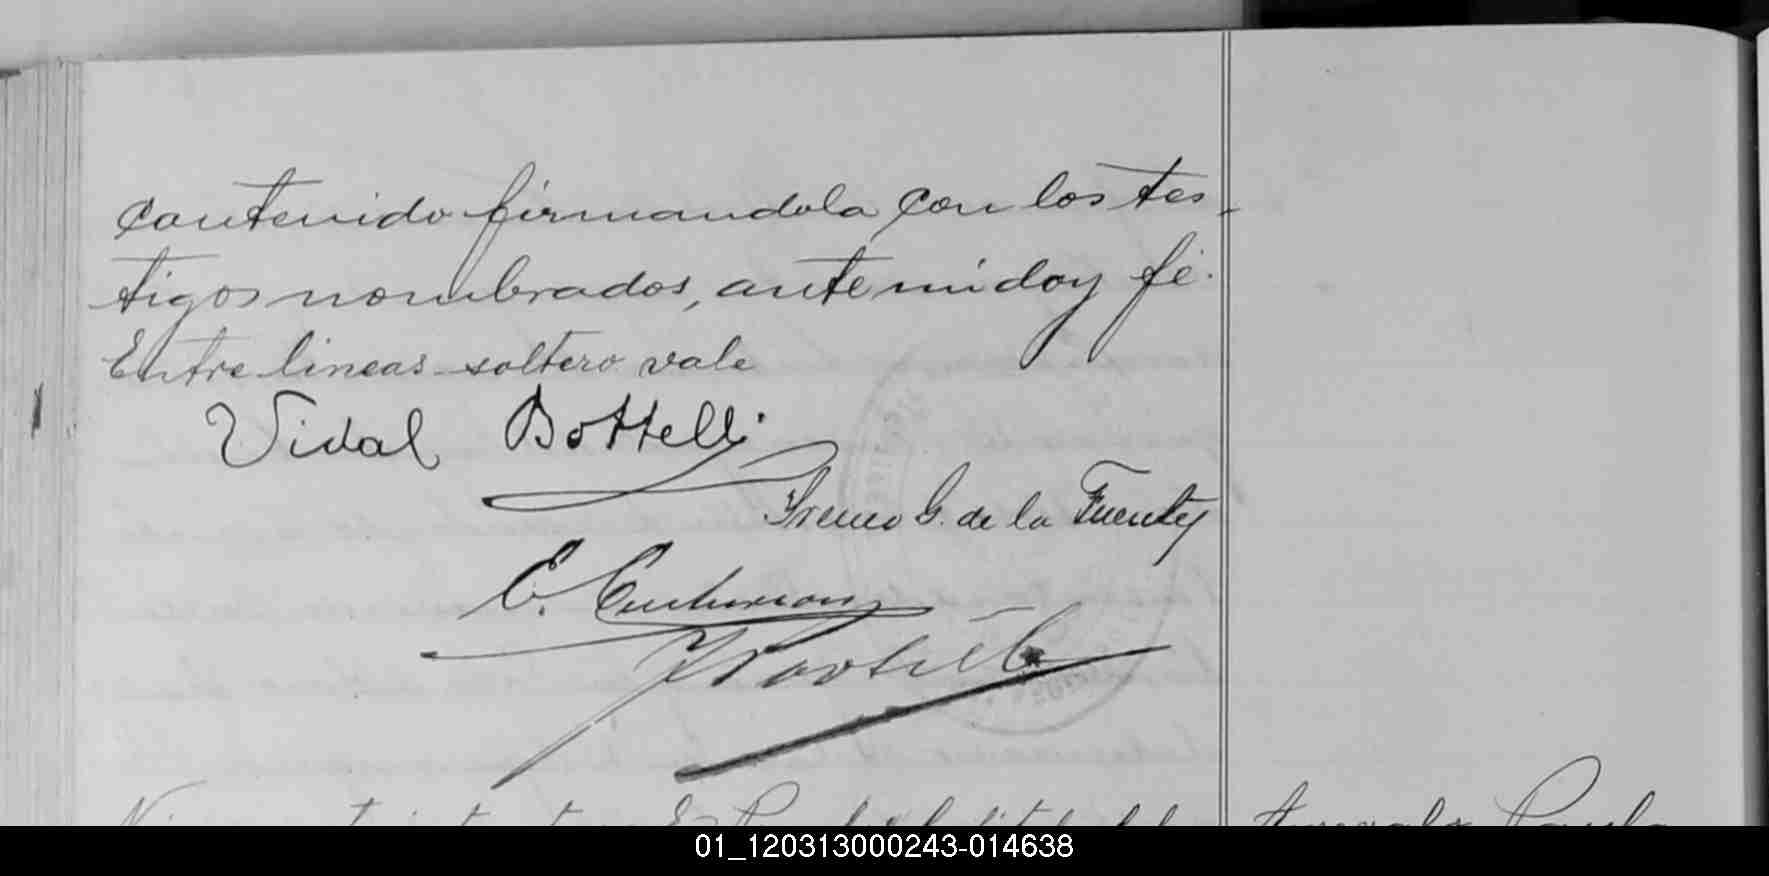 contenido firmandola con los tes-
tigos nombrados, ante mi doy fé.
Entre lineas soltero vale
Vidal Bottelli
Ireneo G. de la Fuente
E.
01_120313000243-014638